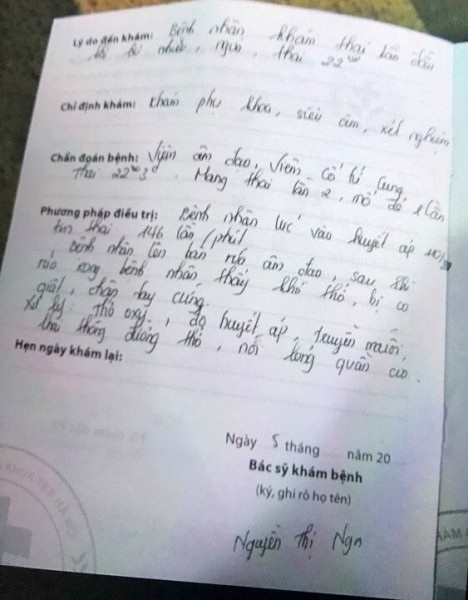 Lý do đến khám: Bệnh nhân khám thai lần đầu
ra khí nhiều, ngứa, thai 22w
Chỉ định khám: Khám phụ khoa, siêu âm, xét nghiệm
Chẩn đoán bệnh: Viêm âm đạo, viêm cổ tử cung
Thai 22w3d. Mang thai lần 2, mổ đẻ 1 lần
Phương pháp điều trị: Bệnh nhân lúc vào huyết áp 110/
tim thai 146 lần/phút
Bệnh nhân lên bàn rửa âm đạo, sau khi
rửa xong bệnh nhân thấy khó thở, bị co
giật, chân tay cứng.
Xử lý: thở oxy, đo huyết áp, truyền muối,
khai thông đường thở, nới lỏng quần áo.
Hẹn ngày khám lại:
Ngày 5 tháng năm 20
Bác sỹ khám bệnh
(ký, ghi rõ họ tên)
Nguyễn Thị Nga